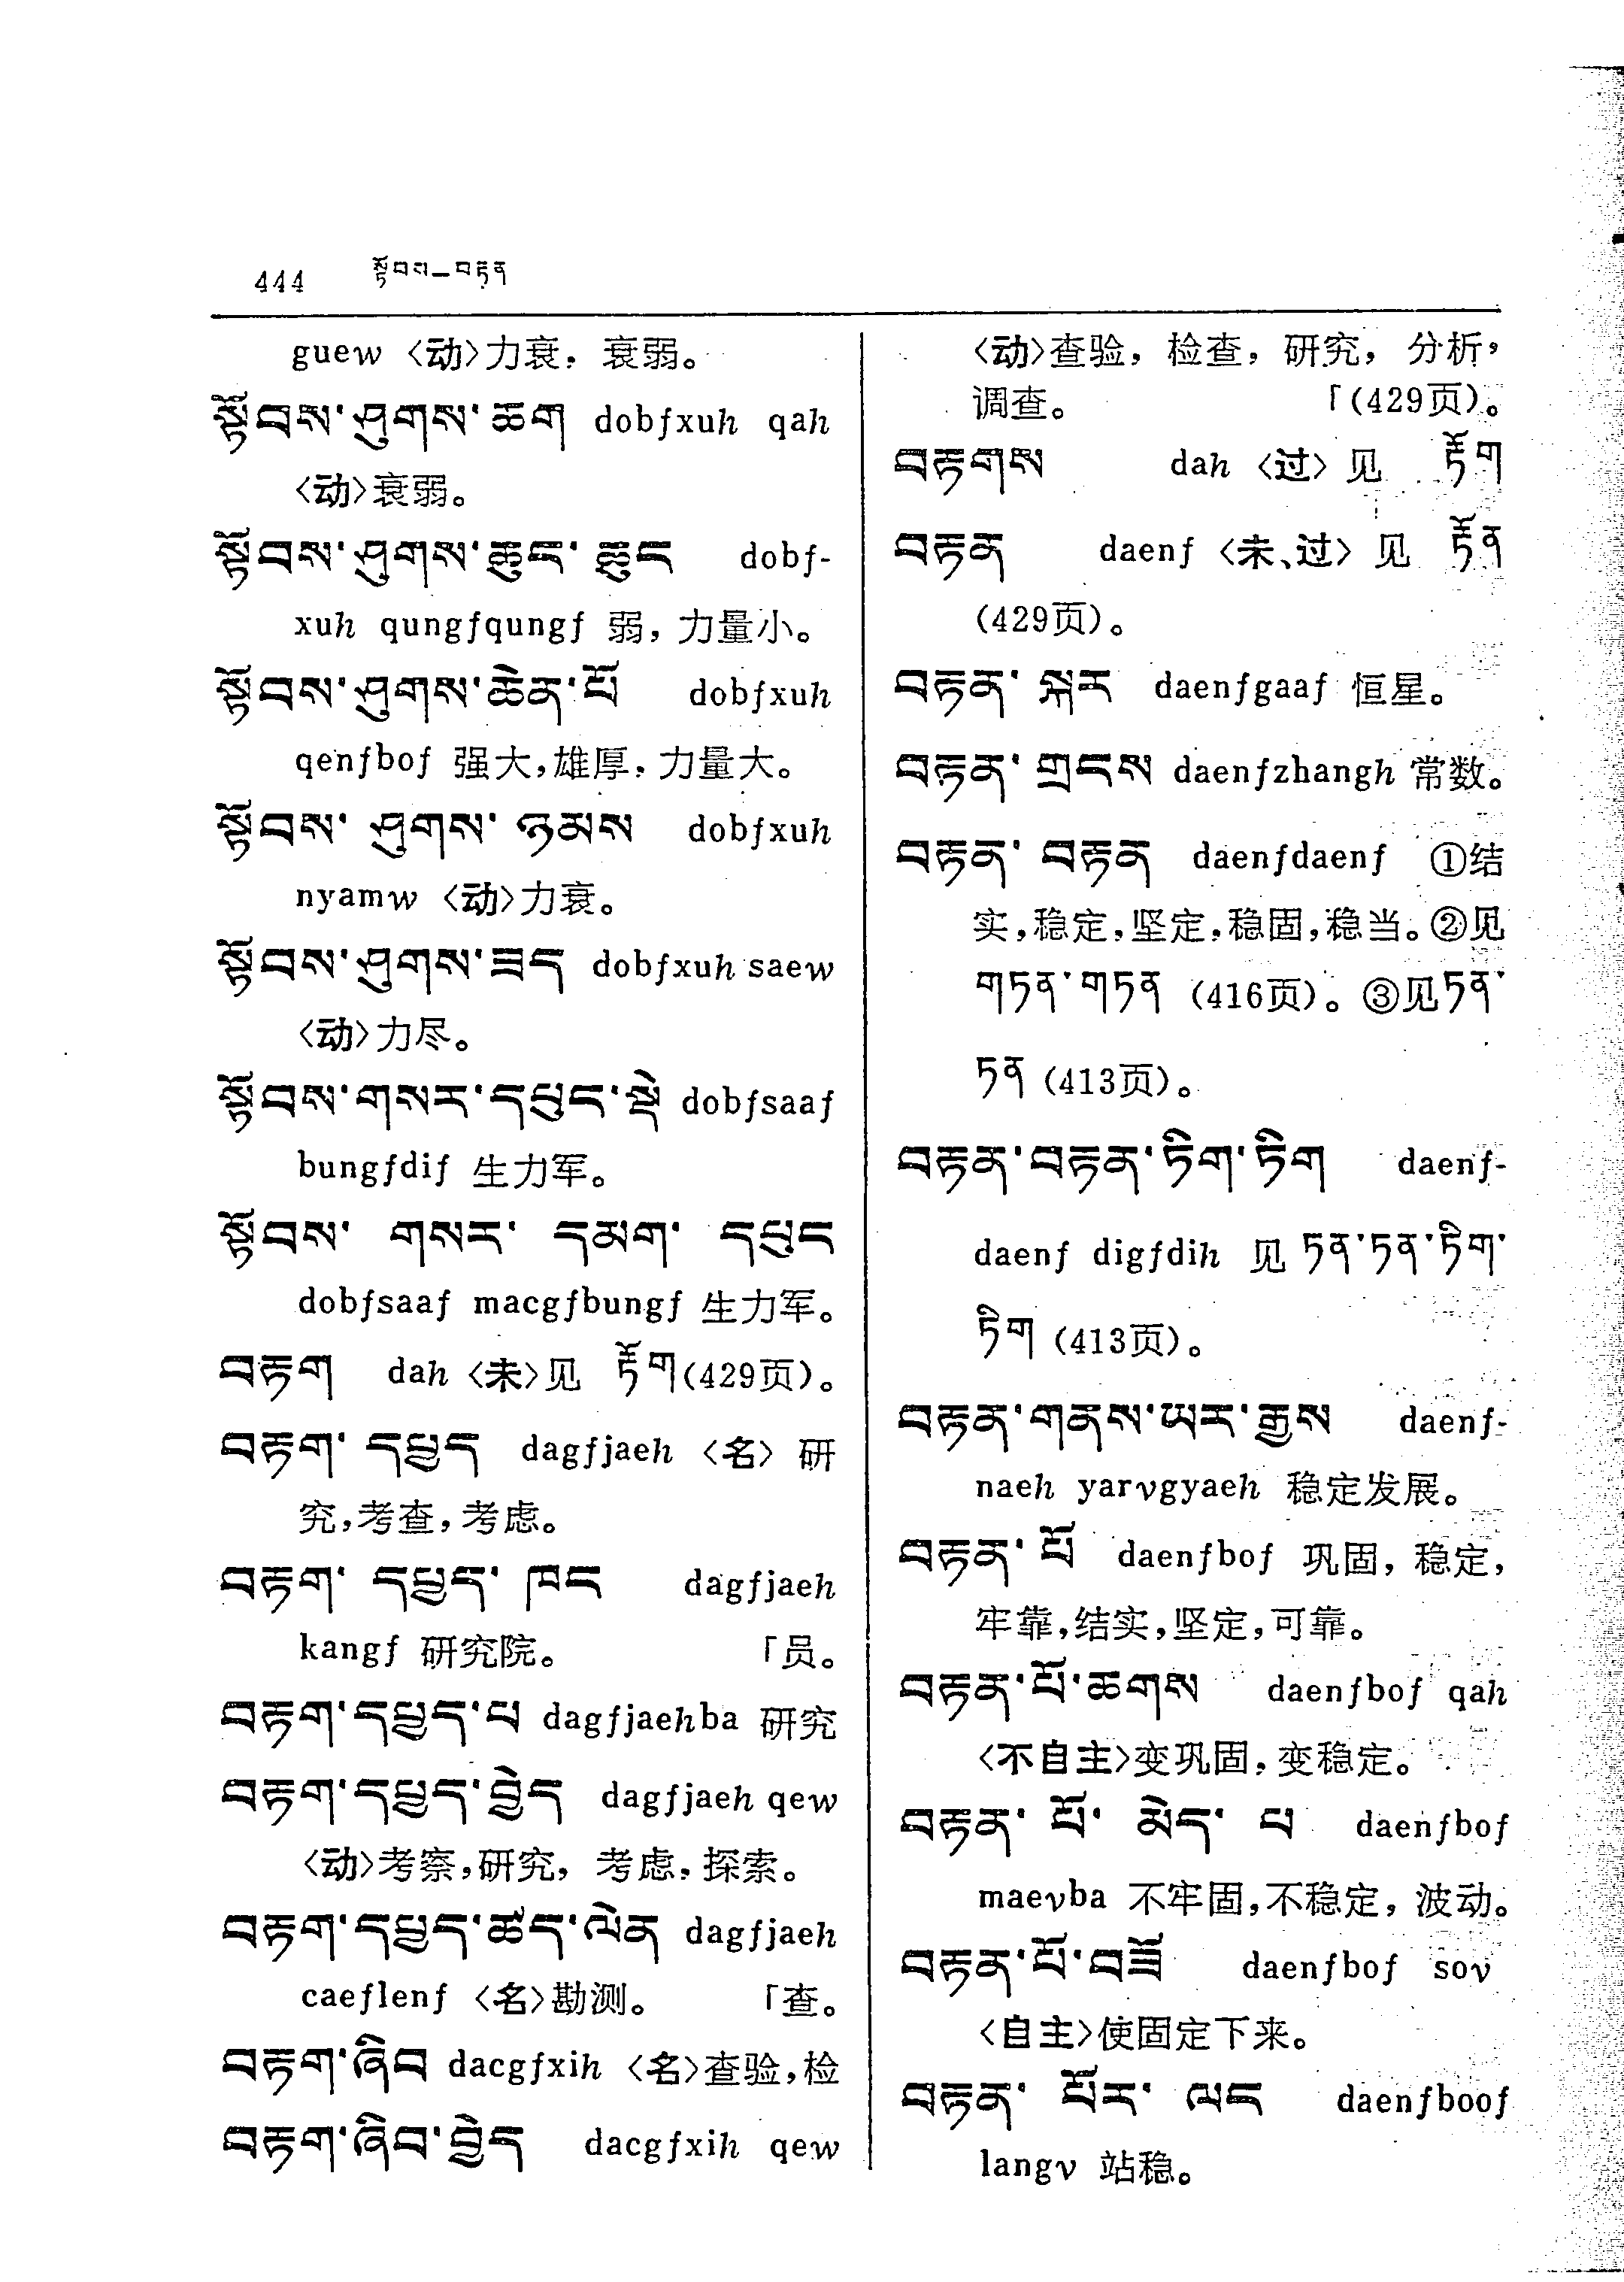 444 སྟོབས—བརྟན
guew 〈动〉力衰，衰弱。
སྟོབས་ཤུགས་ཆག dobfxuh qah
〈动〉衰弱。
སྟོབས་ཤུགས་ཆུང་ཆུང dobf-
xuh qungfqungf 弱，力量小。
སྟོབས་ཤུགས་ཆེན་པོ dobfxuh
qenfbof 强大，雄厚，力量大。
སྟོབས་ཤུགས་ཉམས dobfxuh
nyamw 〈动〉力衰。
སྟོབས་ཤུགས་ཟད dobfxuh saew
〈动〉力尽。
སྟོབས་གསར་དཔུང་སྡེ dobfsaaf
bungfdif 生力军。
སྟོབས་གསར་དམག་དཔུང
dobfsaaf macgfbungf 生力军。
བརྟག dah 〈未〉见 རྟོག(429页)。
བརྟག་དཔྱད dagfjaeh 〈名〉研
究，考查，考虑。
བརྟག་དཔྱད་ཁང dagfjaeh
kangf 研究院。 「员。
བརྟག་དཔྱད་པ dagfjaehba 研究
བརྟག་དཔྱད་བྱེད dagfjaeh qew
〈动〉考察，研究，考虑，探索。
བརྟག་དཔྱད་ཚད་ལེན dagfjaeh
caeflenf 〈名〉勘测。 「查。
བརྟག་ཞིབ dacgfxih 〈名〉查验，检
བརྟག་ཞིབ་བྱེད dacgfxih qew
〈动〉查验，检查，研究，分析，
调查。 「(429页)。
བརྟགས dah 〈过〉见 རྟོག
བརྟན daenf 〈未、过〉见 རྟོན
(429页)。
བརྟན་སྐར daenfgaaf 恒星。
བརྟན་གྲངས daenfzhangh 常数。
བརྟན་བརྟན daenfdaenf ①结
实，稳定，坚定，稳固，稳当。②见
གཏན་གཏན (416页)。③见ཏན་
ཏན (413页)。
བརྟན་བརྟན་ཏིག་ཏིག daenf-
daenf digfdih 见 ཏན་ཏན་ཏིག་
ཏིག (413页)。
བརྟན་གནས་ཡར་རྒྱས daenf-
naeh yarvgyaeh 稳定发展。
བརྟན་པོ daenfbof 巩固，稳定，
牢靠，结实，坚定，可靠。
བརྟན་པོ་ཆགས daenfbof qah
〈不自主〉变巩固，变稳定。
བརྟན་པོ་མེད་པ daenfbof
maevba 不牢固，不稳定，波动。
བརྟན་པོ་བཟོ daenfbof sov
〈自主〉使固定下来。
བརྟན་པོར་ལང daenfboof
langv 站稳。